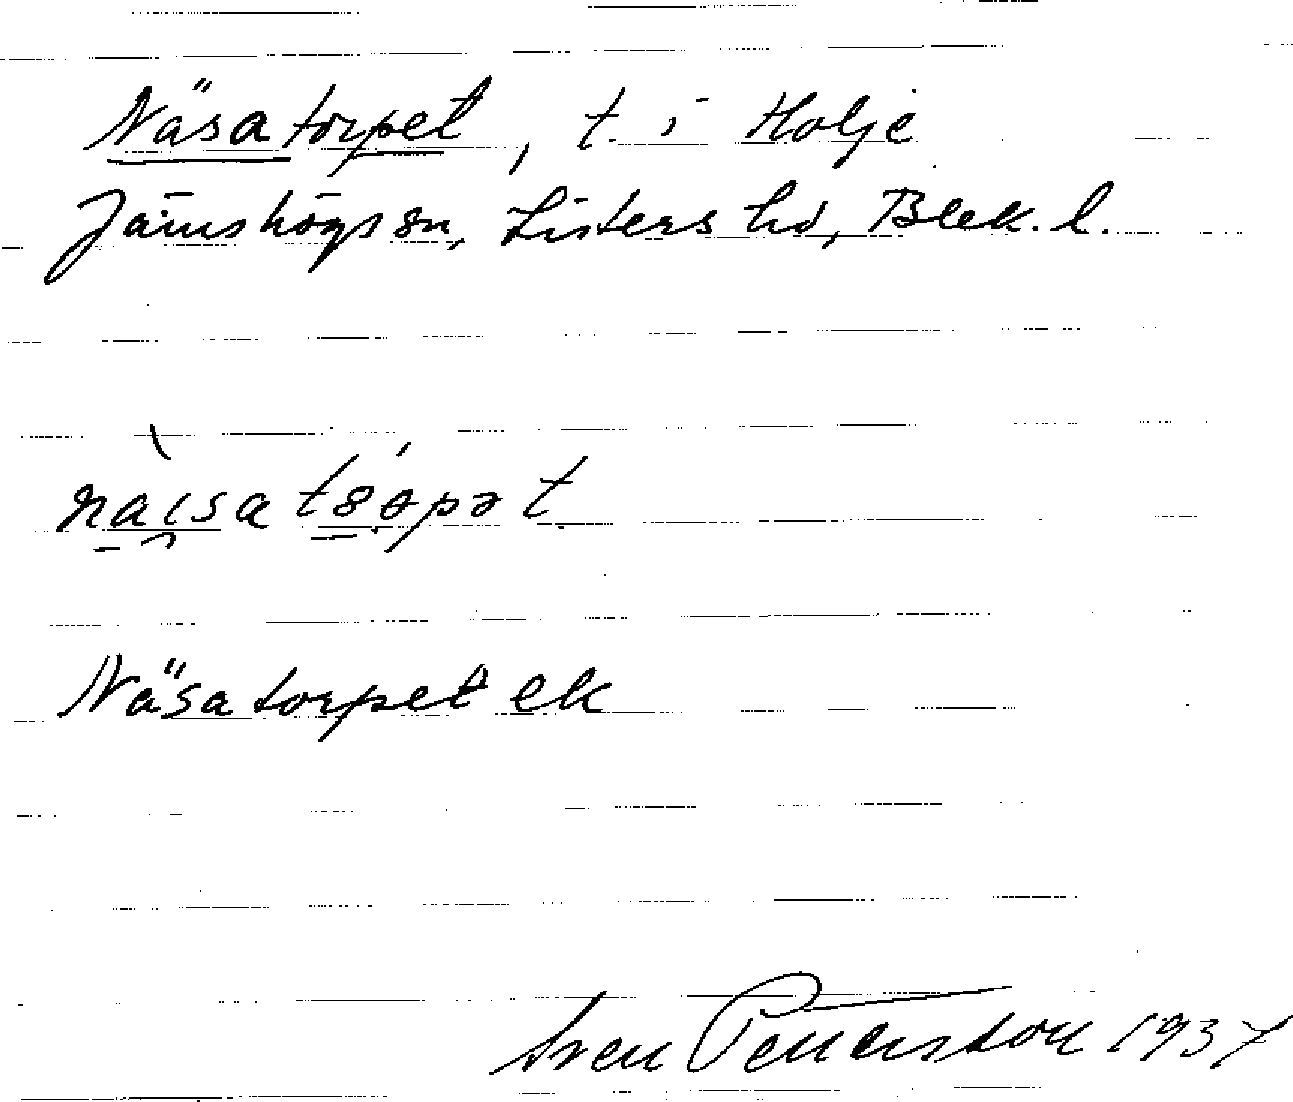 Näsatorpet, t. i Holje
Jämshögs sn, Listers hd, Blek. l.
Näsatorpet ek
Sven Pettersson 1937